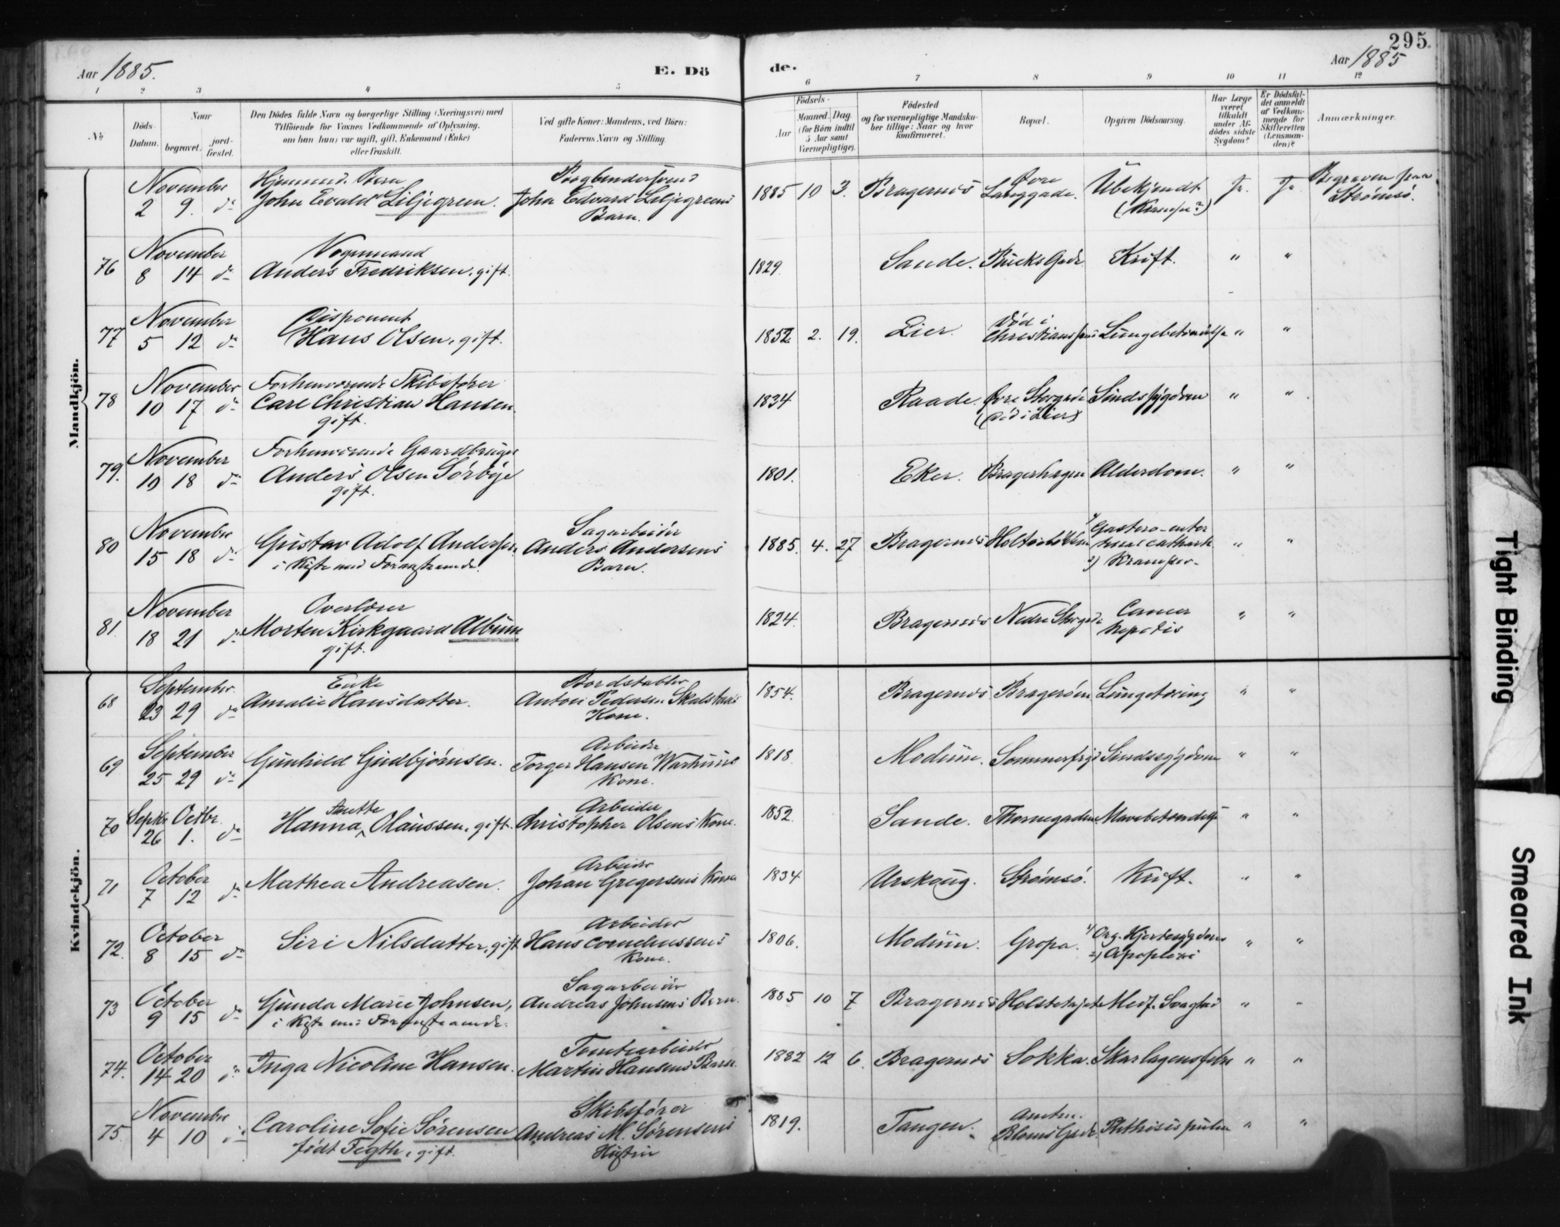 295.
Aar 1885.
E. Dö
de.
Aar 1885
1 2 3 4 5 6 7 8 9 10 11 12
No
Döds-Datum.
Naar
begravet.
jord-fæstet.
Den Dødes fulde Navn og borgerlige Stilling (Næringsvei) med
Tilföiende for Voxnes Vedkommende af Oplysning,
om han (hun) var ugift, gift, Enkemand (Enke)
eller fraskilt.
Ved gifte Koner: Mandens, ved Børn:
Faderens Navn og Stilling.
Födsels-
Aar
Maaned. Dag
(for Börn indtil
5 Aar samt
Værnepligtige).
Födested
og for værnepligtige Mandsku-
ber tillige: Naar og hvor
konfirmeret.
Bopæl.
Opgiven Dödsaarsag.
Har Læge
været
tilkaldt
under Af-
dødes sidste
Sygdom?
Er Dödsfal-
det anmeldt
af Vedkom-
mende for
Skifteretten
(Lensman-
den)?
Anmærkninger.
Mandkjön.
November
2 9. do
John Evald Liljegreen.
John Edvard Liljegreens
Barn.
1885 10 3. Bragernes Øvre
Langgade. Ubekjendt
(Krampe?)
Ja. Ja Begraven paa
Strømsø.
76 November
8 14 do
Vognmand
Anders Fredriksen, gift.
1829 Sande. Bucks Gade Kræft. " "
77 November
5 12 do
Disponent
Hans Olsen, gift.
1852 2. 19. Lier. Död i
" "
78 November
10 17 do
Forhenværende Skibsfører
Carl Christian Hansen
gift.
1834 Raade. Øvre Storgade
(död i Lier) Sindssygdom " "
79. November
10 18 do
Forhenværende Gaardbruger
Anders Olsen Sørbye
gift.
1801. Eker. Bragerhagen Alderdom. " "
80 November
15 18 do
Gustav Adolf Andersen
i Kiste med Foranstaaende.
Sagarbeider
Anders Andersens
Barn.
1885. 4. 27 Bragernes
2) Kramper.
" "
81. November
18 21 do
Overlærer
Morten Kirkgaard Album
gift.
1824. Bragernes Nedre Storgade Cancer
hepatis " "
Kvindekjön.
68 September
23 29 do
Enke
Amalie Hansdatter.
Anton Pedersen
Kone.
1854. Bragernes Bragerøen Lungetæring " "
69 September
25 29 do
Gunhild Gudbjørnsen.
Arbeider
Torger Hansen
Kone.
1818. Modum. Sindssygdom " "
70 Septbr Octbr.
26 1. do
Anette
Hanna Olaussen, gift.
Arbeider
Christopher Olsens Kone.
1852 Sande. Thornegaden Mavebetændelse " "
71 October
7 12 do
Mathea Andreasen.
Arbeider
Johan Gregersens Kone
1834 Urskoug. Strømsø. Kræft. " "
72. October
8 15 do
Siri Nilsdatter, gift
Arbeider
Hans Corneliussens
Kone.
1806. Modum. Gropa. 1) Org. Hjertesygdom
2) Apoplexi " "
73 October
9 15 do
Gunda Marie Johnsen,
i Kiste med Foranstaaende.
Sagarbeider
Andreas Johnsens Barn.
1885 10 7 Bragernes Medf. Svaghed " "
74. October
14 20 do
Inga Nicoline Hansen.
Tomtearbeider
Martin Hansens Barn
1882 12 6. Bragernes Sokka. Skarlagensfeber " "
75. November
4 10 do
Caroline Sofie Sørensen
født Fegth, gift.
Skibsfører
Andreas M. Sørensens
Hustru
1819. Tangen. Bloms Gade. Phthisis pulm " "
Tight Binding
Smeared Ink